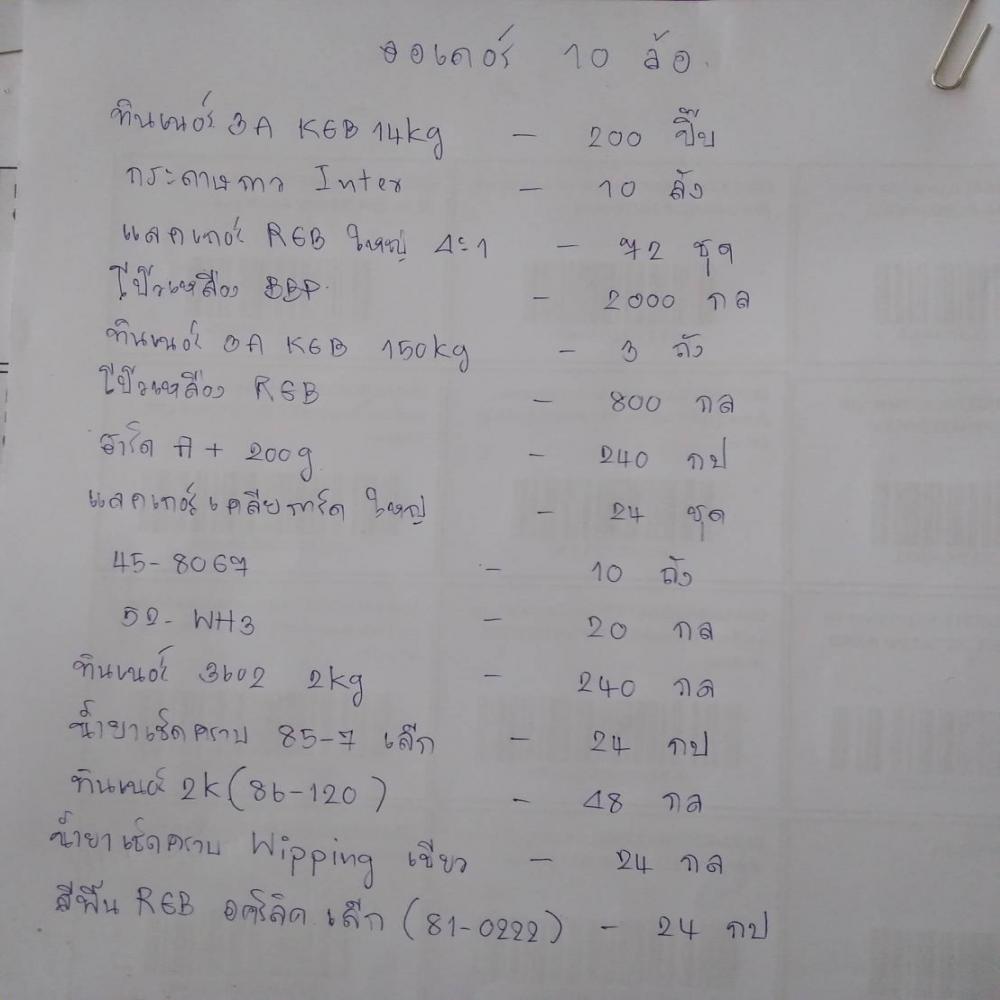 ออเดอร์ 10 ล้อ.
ทินเนอร์ 3A KGB 14kg - 200 ปี๊บ
กระดาษกาว Inter - 10 ลัง
แลคเกอร์ RGB ใหญ่ 4:1 - 72 ชุด
โป๊วเหลือง BBP. - 2000 กล
ทินเนอร์ 3A KGB 150kg - 3 ถัง
โป๊วเหลือง RGB - 800 กล
ฮาร์ด A + 200g. - 240 กป
แลคเกอร์เคลียการ์ด ใหญ่ - 24 ชุด
45-8067 - 10 ถัง
52-WH3 - 20 กล
ทินเนอร์ 3602 2kg - 240 กล
น้ำยาเช็ดคราบ 85-7 เล็ก - 24 กป
ทินเนอร์ 2K (86-120) - 48 กล
น้ำยาเช็ดคราบ Wipping เขียว - 24 กล
สีพื้น RGB อคริลิค เล็ก (81-0222) - 24 กป